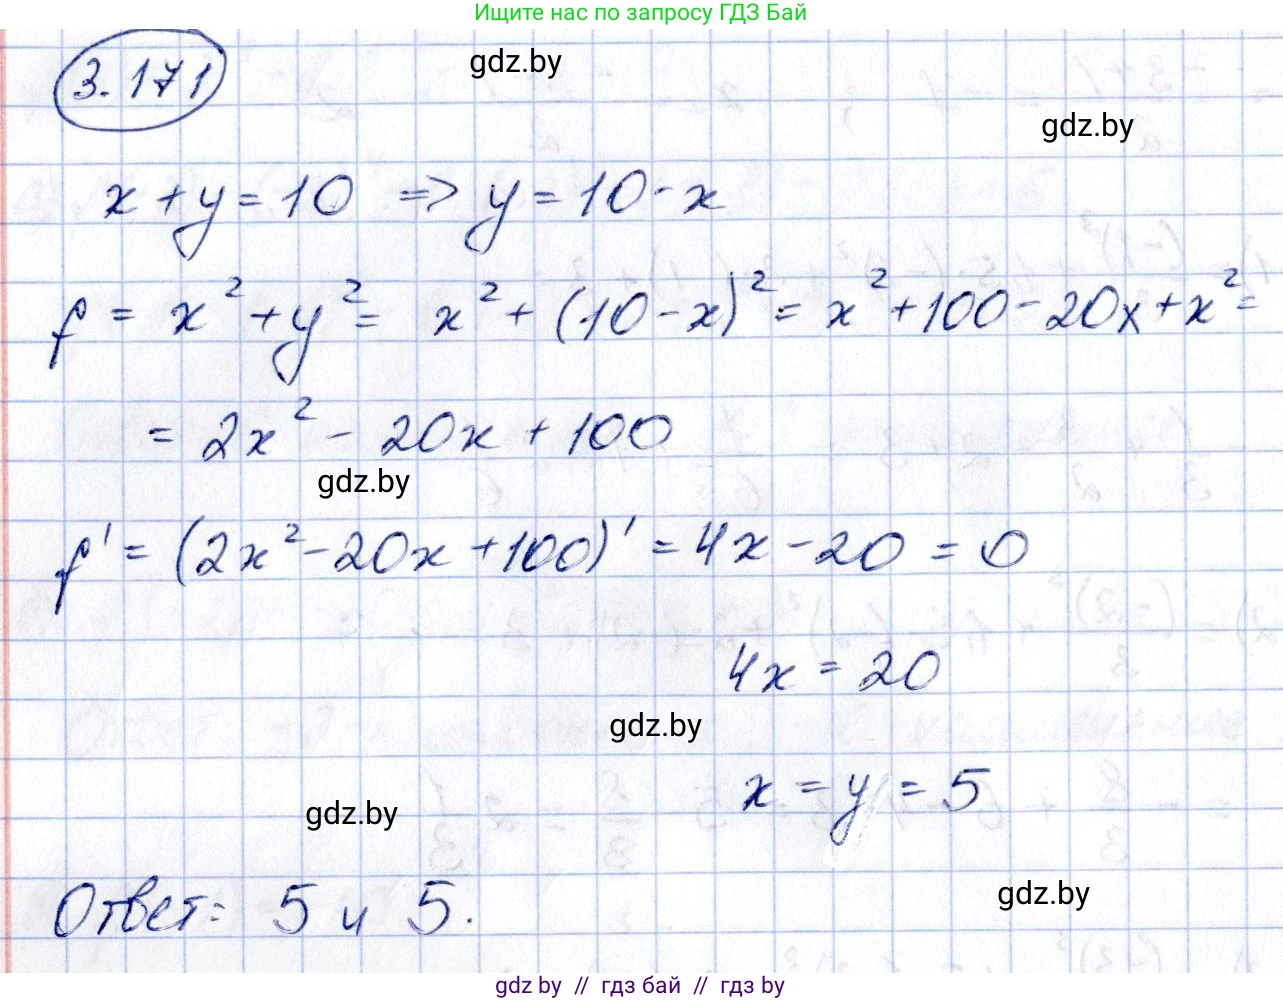 Ищите нас по запросу ГДЗ Бай
3.171
gdz.by
gdz.by
x + y = 10 => y = 10 - x
f = x² + y² = x² + (10 - x)² = x² + 100 - 20x + x² =
= 2x² - 20x + 100
gdz.by
f' = (2x² - 20x + 100)' = 4x - 20 = 0
4x = 20
gdz.by
x = y = 5
gdz.by
gdz.by
Ответ: 5 и 5.
gdz by // гдз бай // гдз by